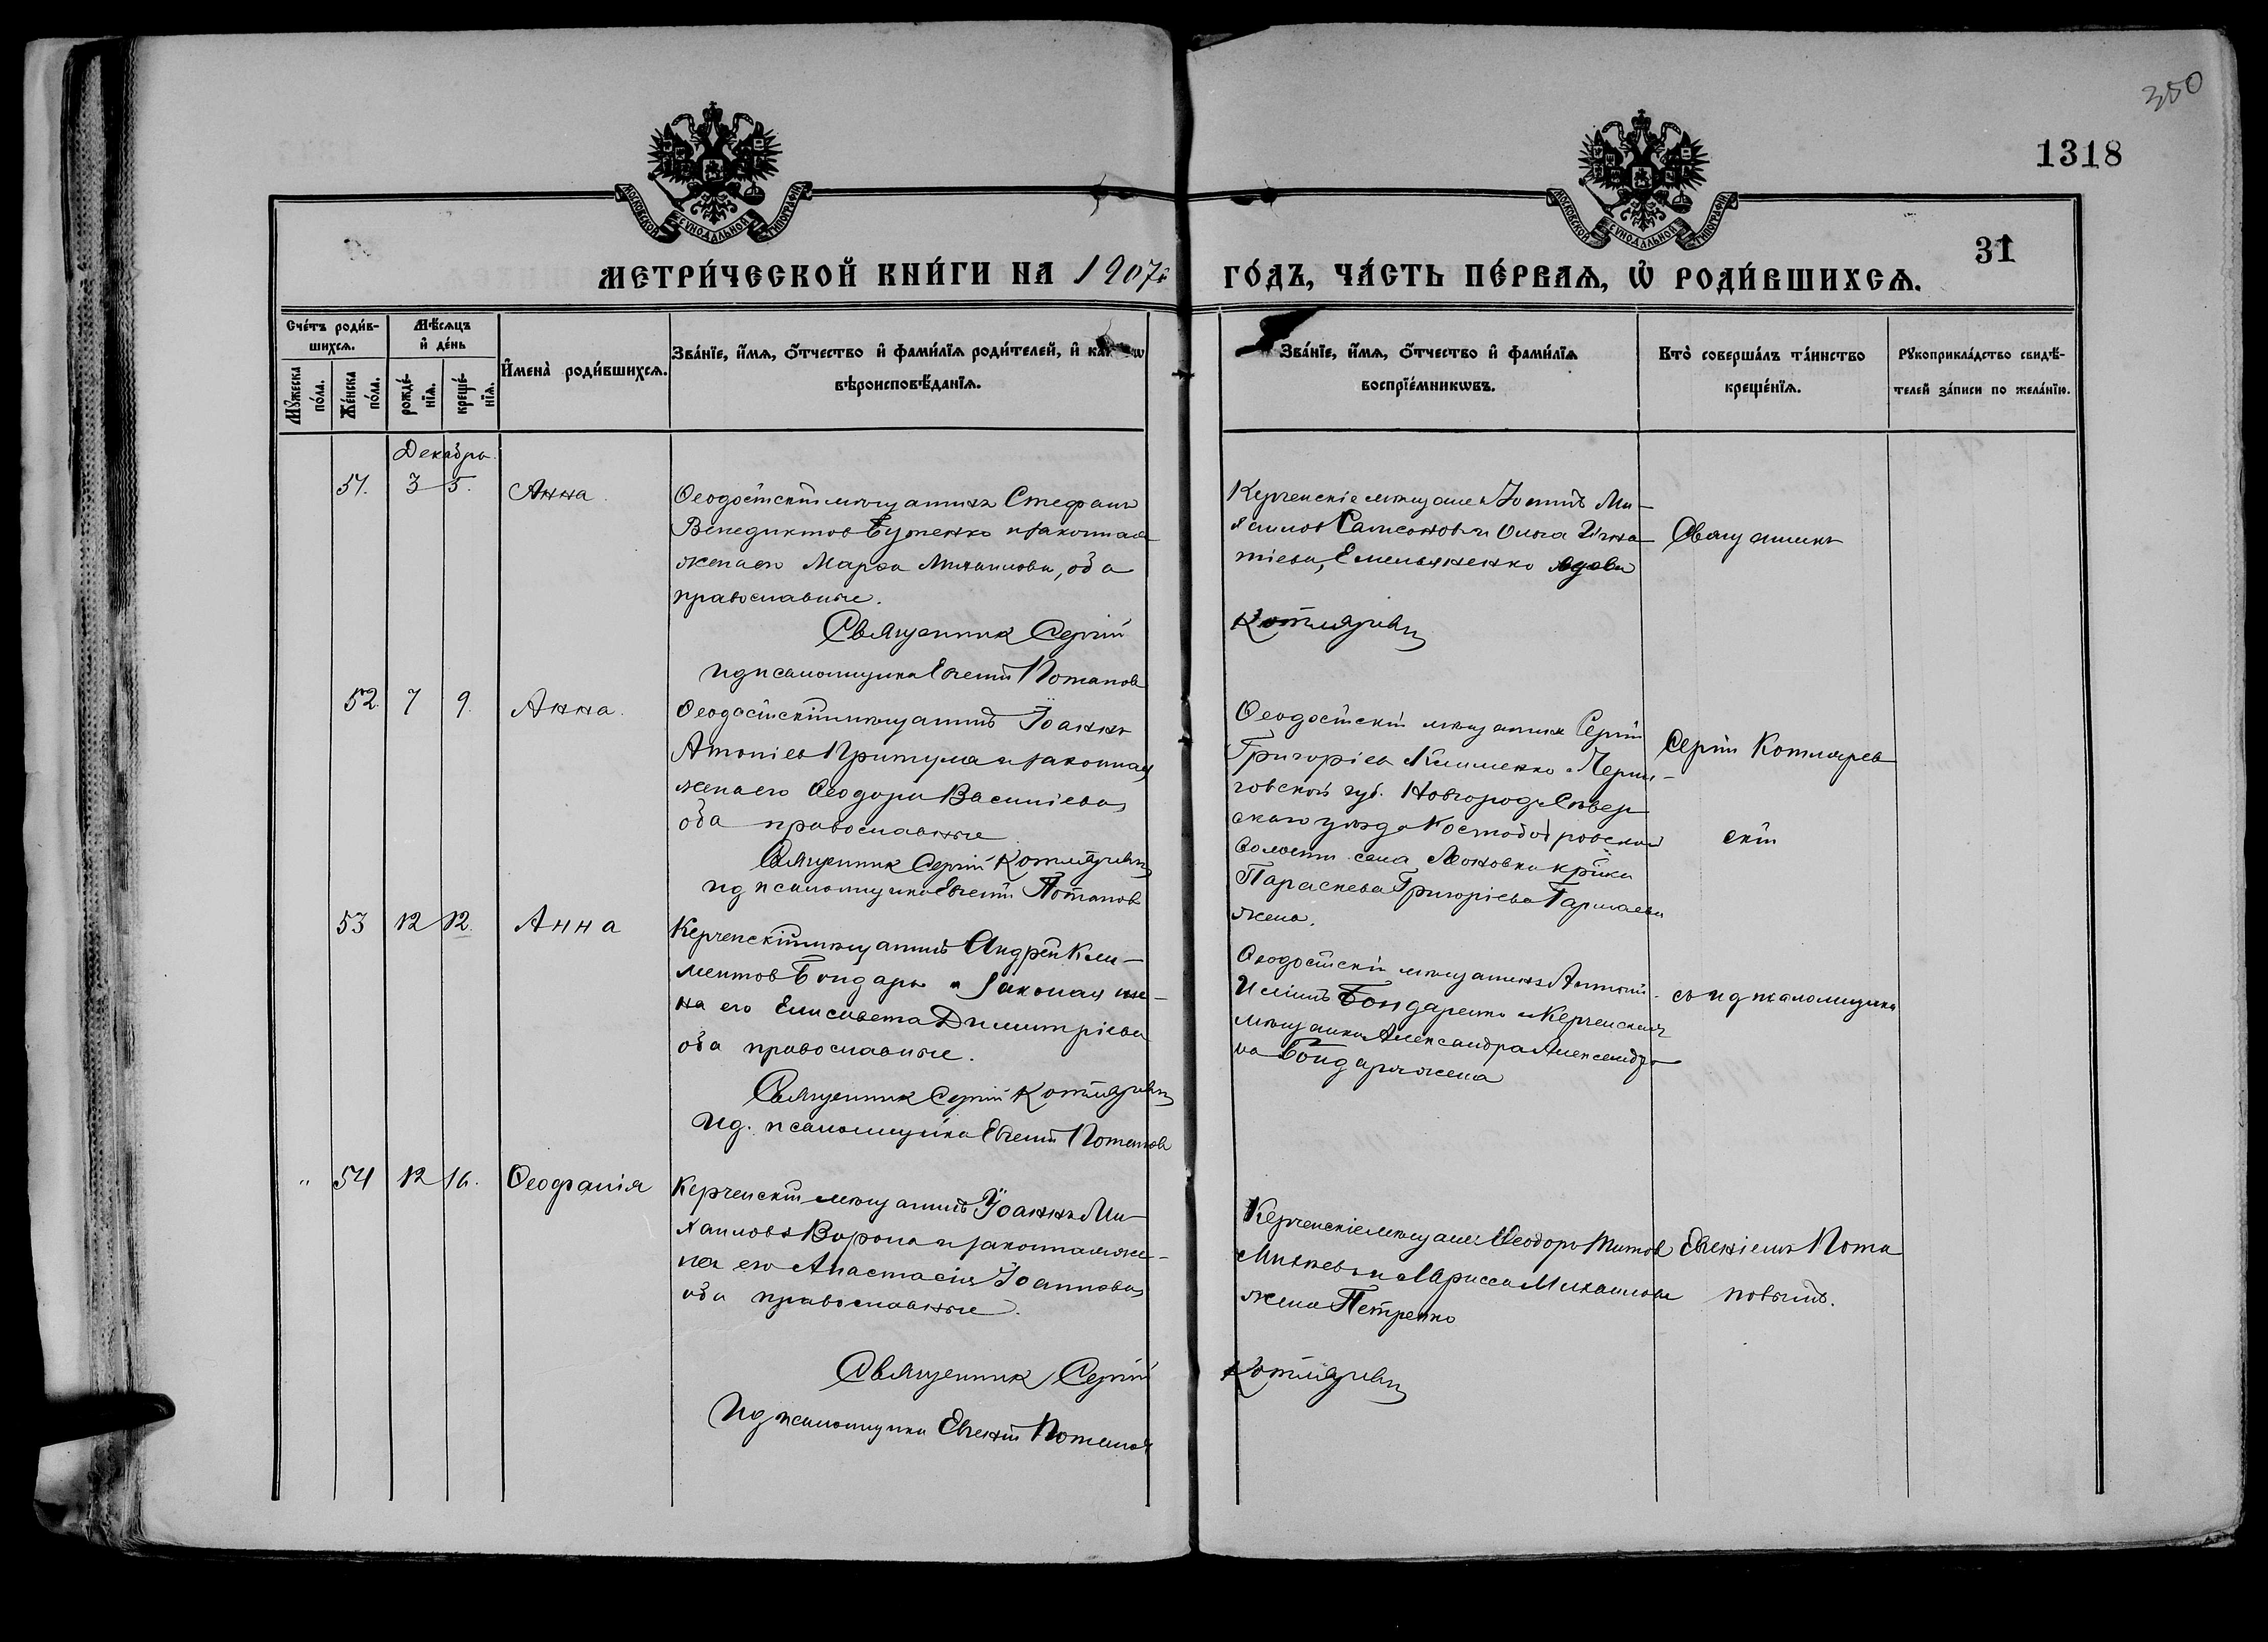 350
1318
31
МОСКОВСКОЙ СѴНОДАЛЬНОЙ ТИПОГРАФІИ
МОСКОВСКОЙ СѴНОДАЛЬНОЙ ТИПОГРАФІИ
МЕТРИ́ЧЕСКОЙ КНИ́ГИ НА 1907й ГО́ДЪ, ЧА́СТЬ ПЕ́РВАѦ, Ѡ҆ РОДИ́ВШИХСѦ.
Сче́тъ роди́в-
шихсѧ.
Мꙋ́жеска по́ла.
Же́нска по́ла.
Мѣ́сѧцъ
и҆ де́нь
рожде́-
нїѧ.
креще́-
нїѧ.
И҆мена̀ роди́вшихсѧ.
Зва́нїе, и҆́мѧ, ѻ҆́тчество и҆ фами́лїѧ роди́телей, и҆ како́
вѣроисповѣ́данїѧ.
Зва́нїе, и҆́мѧ, ѻ҆́тчество и҆ фами́лїѧ
воспрїе́мникѡвъ.
Кто̀ соверша́лъ та́инство
креще́нїѧ.
Рꙋкоприкла́дство свидѣ́-
телей за́писи по жела́нїю.
Декабрь
51. 3 5. Анна.
Ѳеодосійскій мѣщанинъ Стефанъ
Венедиктовъ Бутенко и законная
жена его Марѳа Михаилова, оба
православные.
Священник Сергій
ид псаломщика Евгеній Потапов
Керченскіе мѣщане Ми-
хаилов Самсонов и Ольга Игна-
тіева, Емельяненко вдова
Котляревск
Священникъ
52. 7 9. Анна.
Ѳеодосійскій мѣщанинъ Іоаннъ
Антоніев Притула и законная
жена его Ѳеодора Василіева,
оба православные
Священник Сергій Котляревск
ид псаломщика Евгеній Потапов
Ѳеодосійскій мѣщанин Сергій
Григоріев Клименко и Черни-
говской губ. Новгород-Сѣвер
скаго уѣзда Костобобровской
волости села Леоновки крїка
Параскева Григоріева
жена.
Сергій Котлярев
скій
53 12 12. Анна
Керченскій мѣщанинъ Андрей Кли-
ментов Бондарь и законая же-
на его Елисавета Димитріева
оба православные.
Священник Сергій Котляревск
Ид. псаломщика Евгеній Потапов
Ѳеодосійскій мѣщанинъ Антоній
Бондаренко и Керченская
мѣщанка Александра Александро
ва Бондарь жена
съ ид псаломщика
" 54 12 16. Ѳеофанія
Керченскій мѣщанинъ Іоаннъ Ми-
хаиловъ Ворона и законная же-
на его Анастасія Іоаннова,
оба православные.
Священник Сергій
Ид псаломщика Евгеній Потапов
Керченскіе мѣщане Ѳеодоръ Титов
и Лариса Михаилова
жена Петренко
Котляревск
Евгеніемъ Пота
повымъ.